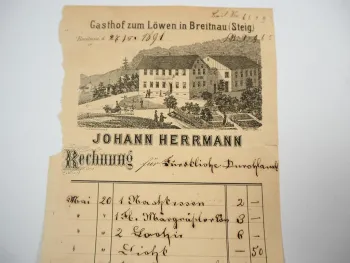 Gasthof zum Löwen in Breitnau (Steig)
1891
JOHANN HERRMANN
Rechnung für Fürstliche Durchlaucht
Mai 20 1 Nachtessen 2 —
1 Fl. Markgräfler 3 —
2 Logis 6 —
Licht — 50